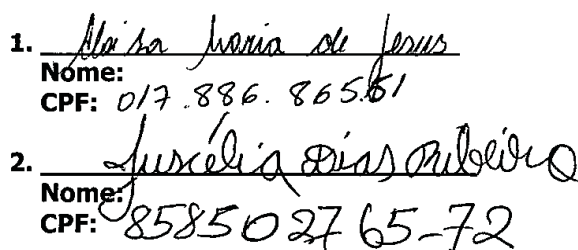 1. Maisa Maria de Jesus
Nome:
CPF: 017.886.865.61
2. Juscélia Dias Ribeiro
Nome:
CPF: 858502765-72